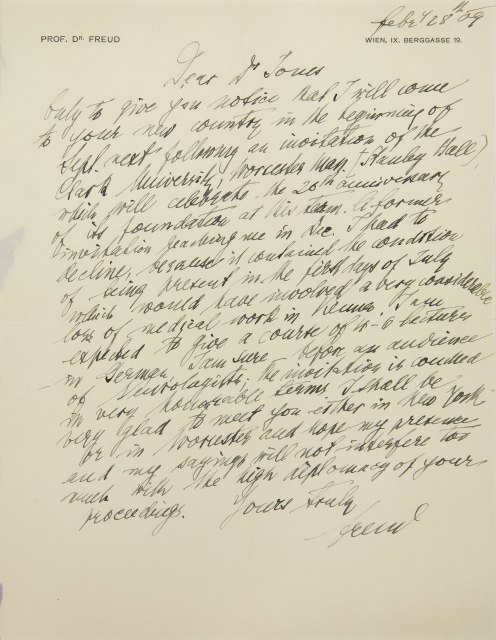 Febr 28th 09
PROF. DR. FREUD
WIEN, IX. BERGGASSE 19.
Dear Dr Jones
Only to give you notice that I will come
to your new country in the beginning of
Sept. next following an invitation of the
Clark University, Worcester Mass. (Stanley Hall)
which will celebrate the 20th anniversary
of its foundation at this term. A former
invitation reaching me in Dec. I had to
decline, because it contained the condition
of being present in the first days of July
which would have involved a very considerable
loss of medical work in Vienna. I am
expected to give a course of 4-6 lectures
in German, I am sure before an audience
of Neurologists. The invitation is couched
in very honourable terms. I shall be
very glad to meet you either in New York
or in Worcester and hope my presence
and my sayings will not interfere too
much with the high diplomacy of your
proceedings.
Yours truly
Freud